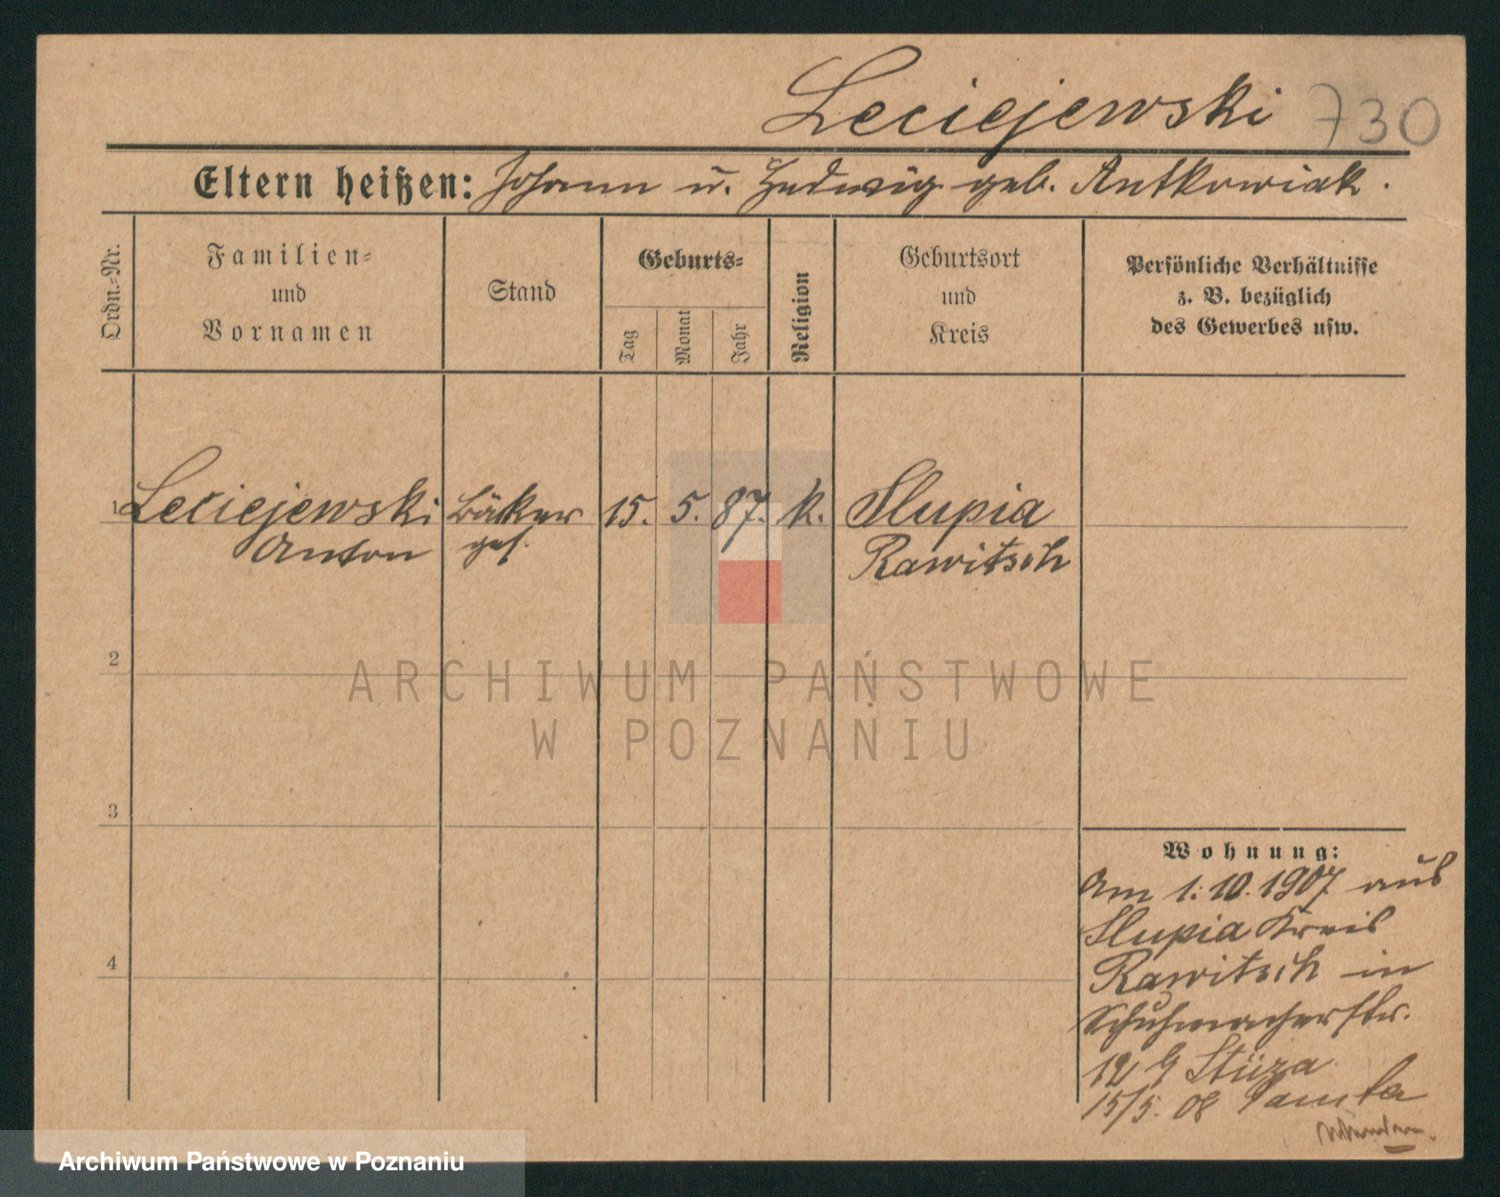 Leciejewski 730
Eltern heißen: Johann u. Hedwig geb. Antkowiak.
Ordn.-Nr.
Familien-
und
Vornamen
Stand
Geburts-
Tag
Monat
Jahr
Religion
Geburtsort
und
Kreis
Persönliche Verhältnisse
z. B. bezüglich
des Gewerbes usw.
1 Leciejewski Bäcker 15. 5. 87. k. Slupia
Anton ges. Rawitsch
2
3
4
Wohnung:
Am 1.10.1907 aus
Slupia Kreis
Rawitsch in
Schuhmacherstr.
12 b
15/5. 08
ARCHIWUM PAŃSTWOWE
W POZNANIU
Archiwum Państwowe w Poznaniu